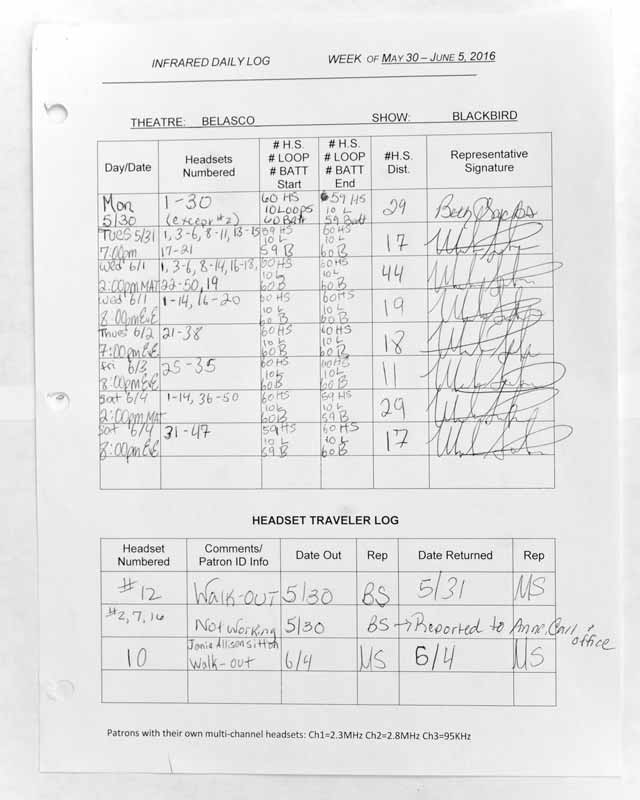 INFRARED DAILY LOG WEEK OF MAY 30 – JUNE 5, 2016
THEATRE: BELASCO SHOW: BLACKBIRD
Day/Date Headsets Numbered # H.S. # LOOP # BATT Start # H.S. # LOOP # BATT End #H.S. Dist. Representative Signature
Mon 5/30 1-30 (except #2) 60 HS 10 Loops 60 Batt 59 HS 10 L 59 Batt 29
TUES 5/31 7:00pm 1, 3-6, 8-11, 13-15 17-21 59 HS 10 L 59 B 60 HS 10 L 60 B 17
Wed 6/1 2:00pm MAT 1, 3-6, 8-14, 16-18, 22-50, 19 60 HS 10 L 60 B 60 HS 10 L 60 B 44
Wed 6/1 8:00pm EVE 1-14, 16-20 60 HS 10 L 60 B 60 HS 10 L 60 B 19
Thues 6/2 7:00pm EVE 21-38 60 HS 10 L 60 B 60 HS 10 L 60 B 18
Fri 6/3 8:00pm EVE 25-35 60 HS 10 L 60 B 60 HS 10 L 60 B 11
Sat 6/4 2:00pm MAT 1-14, 36-50 60 HS 10 L 60 B 59 HS 10 L 59 B 29
Sat 6/4 8:00pm EVE 31-47 59 HS 10 L 59 B 60 HS 10 L 60 B 17
HEADSET TRAVELER LOG
Headset Numbered Comments/ Patron ID Info Date Out Rep Date Returned Rep
#12 Walk-out 5/30 BS 5/31 MS
#2, 7, 16 Not Working 5/30 BS → Reported to Anne, Carl + office
10 Janie Allison Sitton Walk-out 6/4 MS 6/4 MS
Patrons with their own multi-channel headsets: Ch1=2.3MHz Ch2=2.8MHz Ch3=95KHz